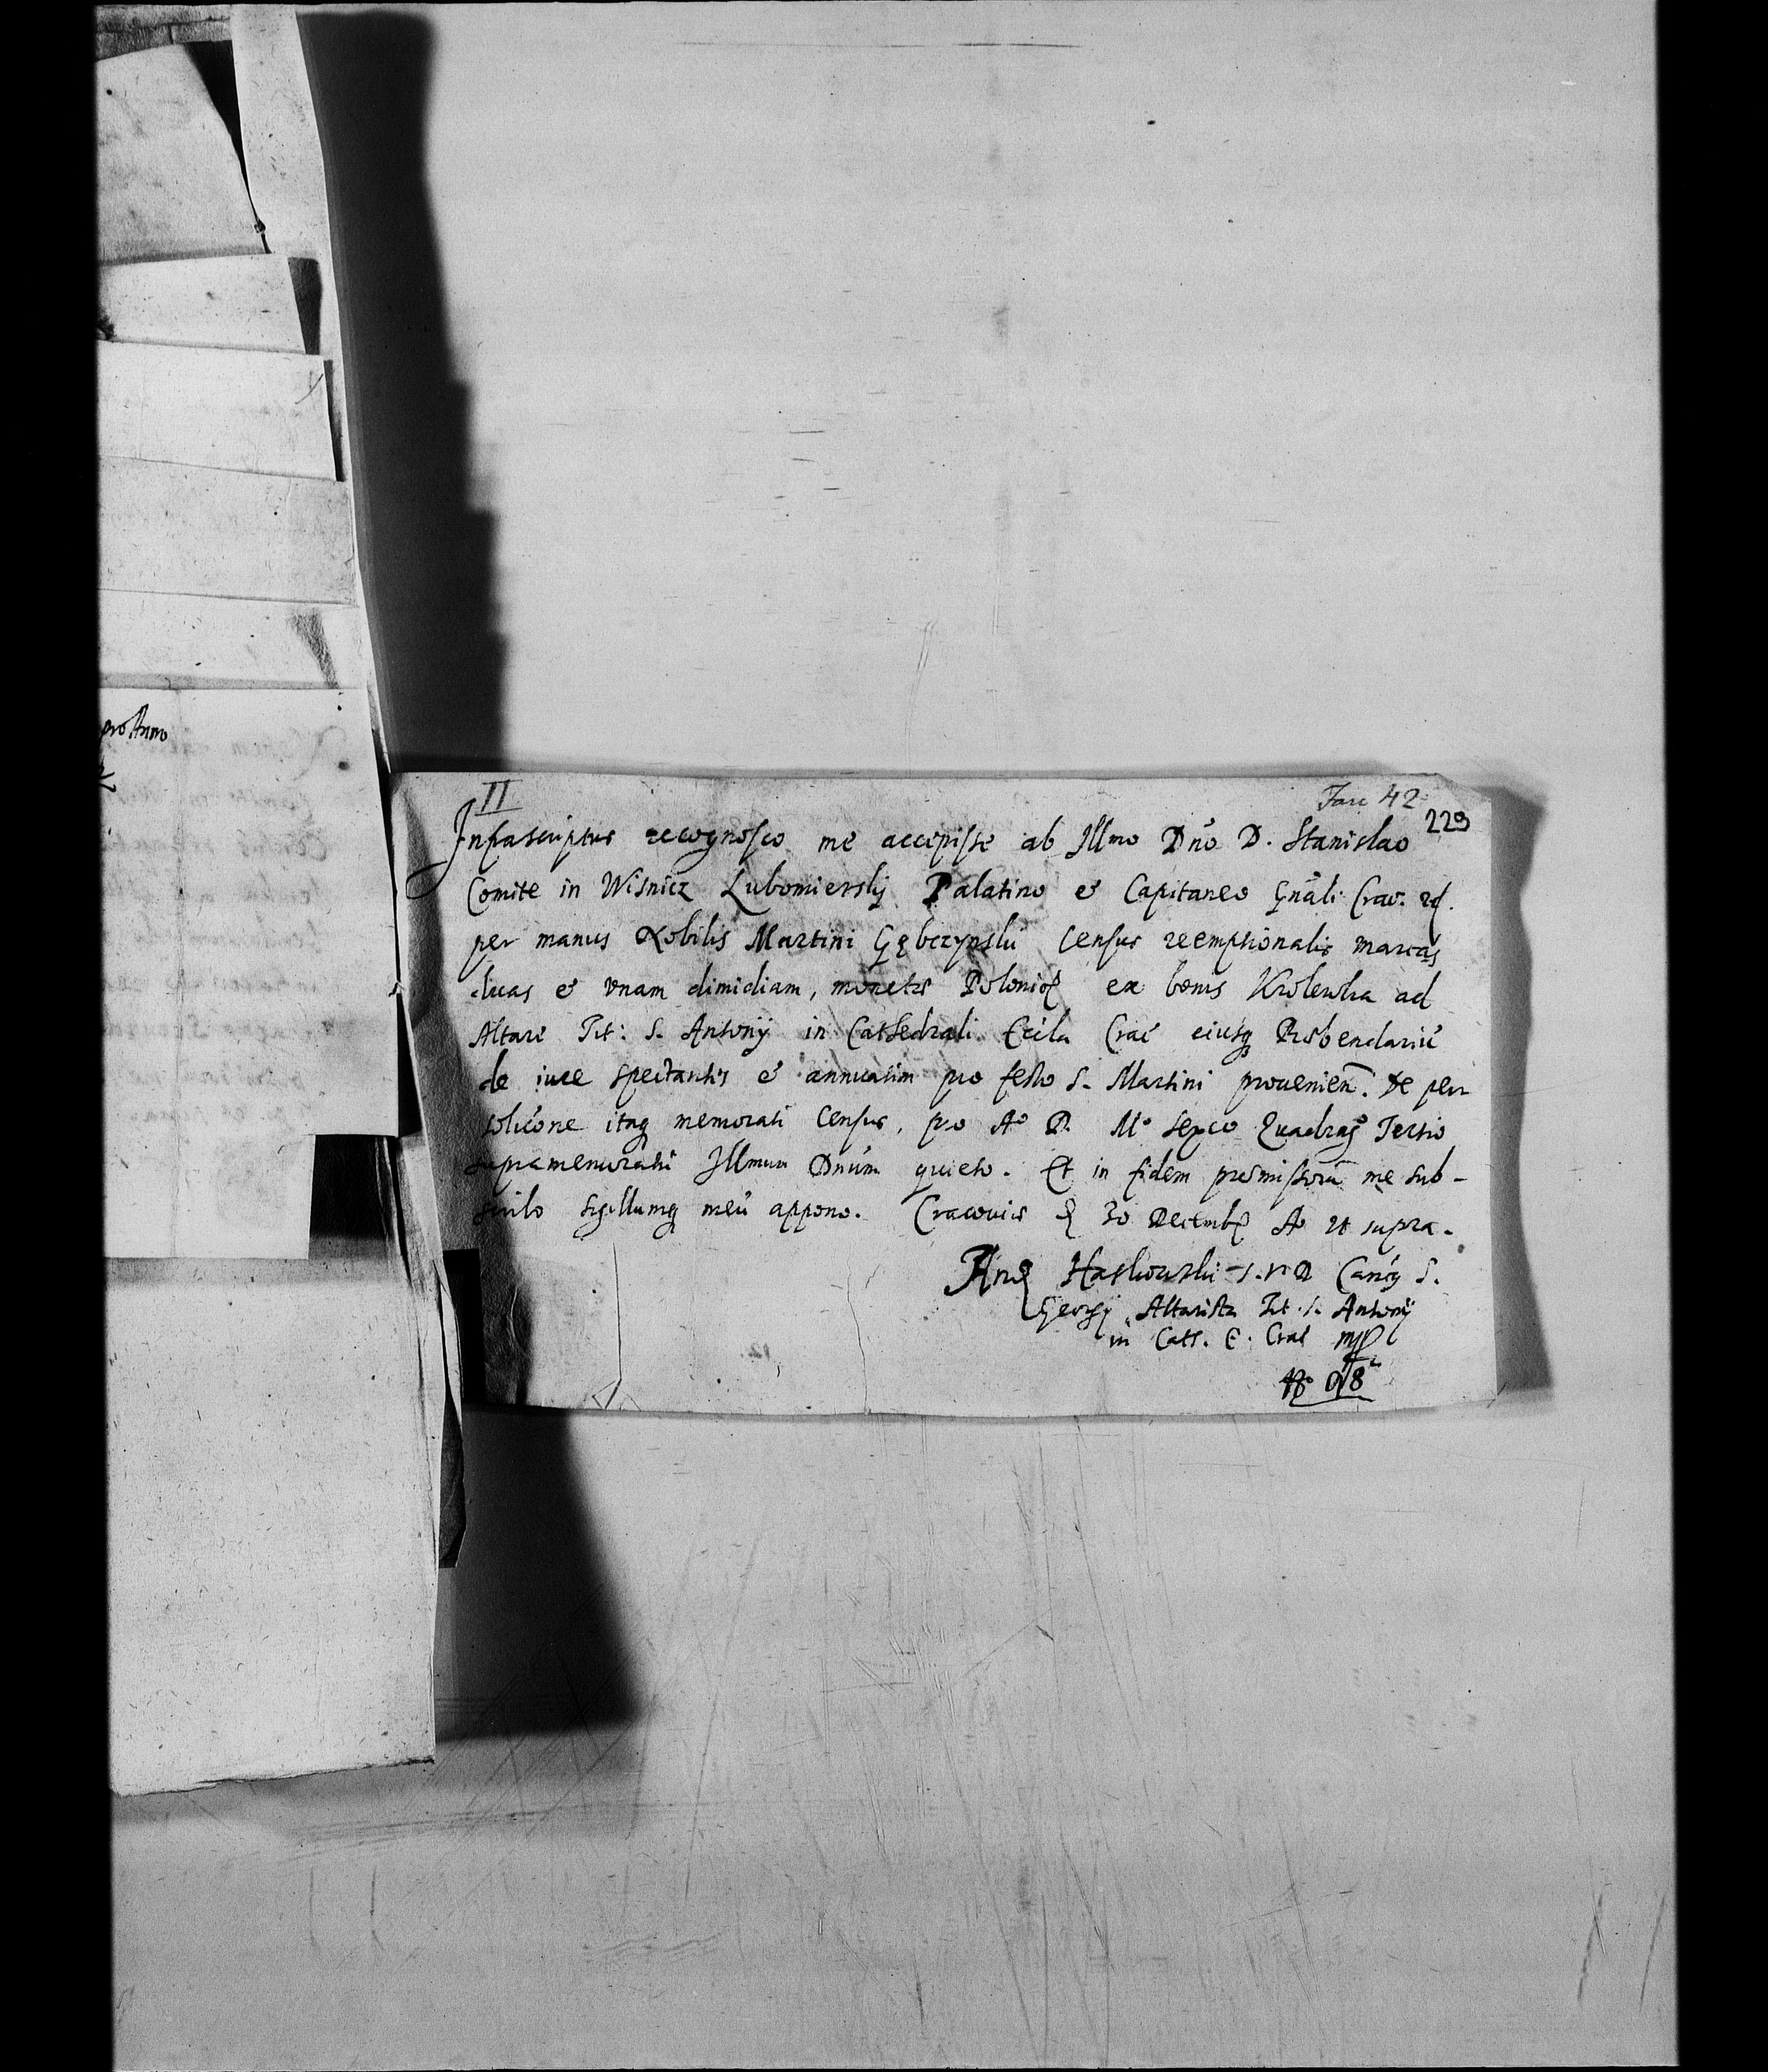 pro Anno
II
Fasc 42
229
Infrascriptus recognosco me accepisse ab Illmo Dno D. Stanislao
Comite in Wisnicz Lubomierskÿ Palatino & Capitaneo Gnali Crac.
per manus Nobilis Martini Gębczynski Census reemptionalis marcas
duas & vnam dimidiam, monetæ Polonic ex bonis Krolewka ad
Altare Tit: S. Antonÿ in Cathedrali Eccla Crac eiusq Præbendariū
de iure spectantis & annuatim pro festo S. Martini prouenien. De per
solucone itaq memorati Census, pro Ao D. Mo sexco Quadrag Tertio
supramemorati Illmum Dnum quieto. Et in fidem præmissorū me sub-
scribo sigillumq meū appono. Cracouiæ 30 Decemb Ao ut supra.
And Haskowski Cancq S.
Georgÿ Altarista Tit. S. Antonÿ
in Cath. E. Crac mp